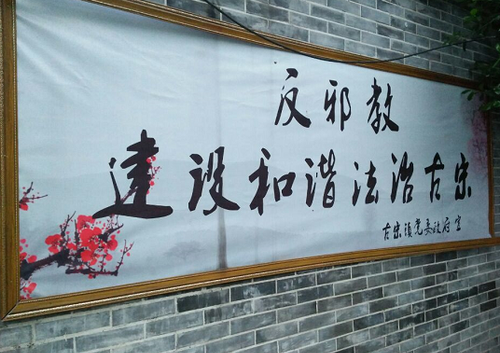 反邪教
建设和谐法治古宋
古宋镇党委政府宣